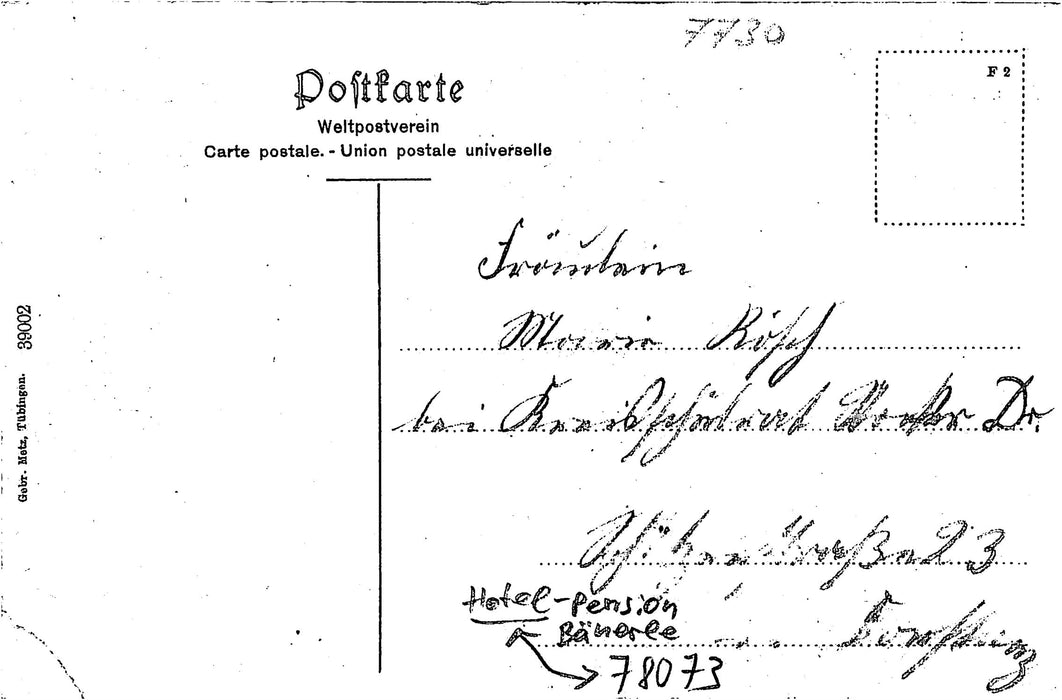 7730
F 2
Postkarte
Weltpostverein
Carte postale. - Union postale universelle
Fräulein
Marie Rösch
bei Kreisschulrat Dr.
Schützenstraße 23
Hotel-Pension
Bäuerle
78073
39002
Gebr. Metz, Tübingen.